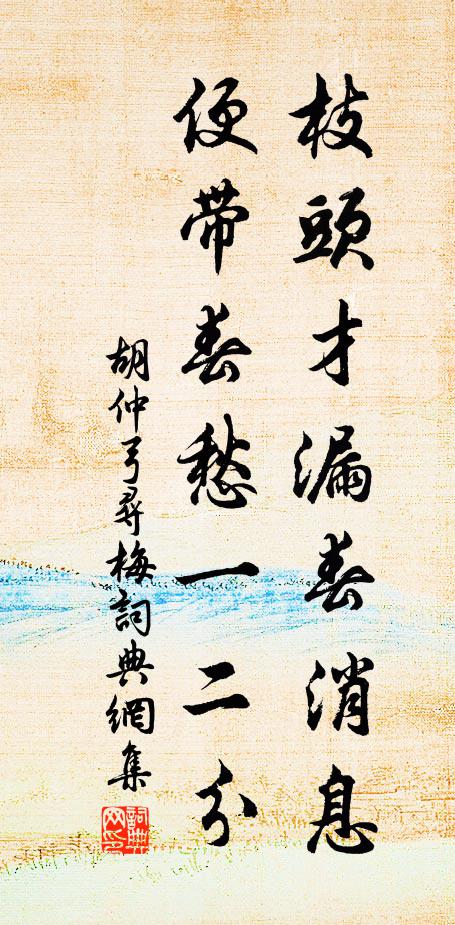 枝頭才漏春消息
便帶春愁一二分
胡仲弓尋梅詞典網集
詞典网印